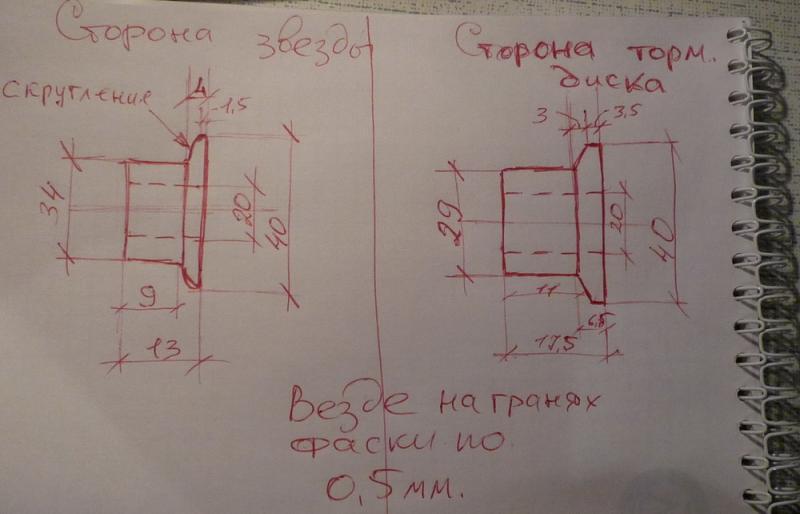 Сторона звезды
скругление
4
1,5
34
20
40
9
13
Сторона торм.
диска
3
3,5
29
20
40
11
6,5
17,5
Везде на гранях
фаски по
0,5мм.